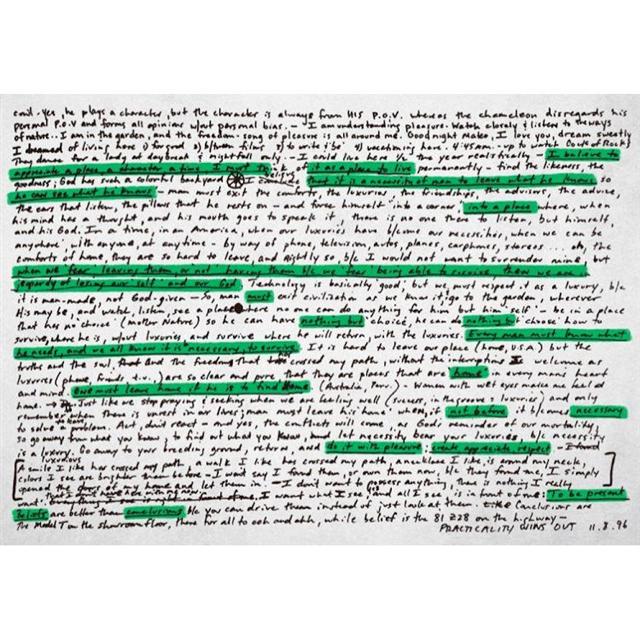 civil - yes, he plays a character, but the character is always from HIS P.O.V. whereas the chameleon disregards his
personal P.O.V and forms all opinions w/out personal bias. - I am understanding pleasure. Watch closely & listen to the ways
of nature.. I am in the garden, and the freedom - song of pleasure is all around me. Good night Mako, I love you, dream sweetly
I dreamed of living here 1) for good 2) b/tween films 3) to write & be 4) vacationing here. 4:45 am - up to watch Cocks of Rock
They dance for a lady at daybreak & nightfall only. - I could live here 1/2 the year realistically - I believe to
appreciate a place, a character a time, I must think of it as a place to live permanently - find the likeness, the
goodness; God such a colorful backyard that it is a necessity of man to leave what he knows so
he can see what he knows - man must exit the comforts, the luxuries, the friendships, the advisors, the advice,
the ear that listens, the pillars that he rests on - and force himself into a corner, into a place where, when
his mind has a thought, and his mouth goes to speak it, there is no one there to listen, but himself,
and his God. In a time, in an America, when our luxuries have b/come our necessities, when we can be
anywhere, with anyone, at any time - by way of phone, television, autos, planes, carphones, stereos ... oh, the
comforts of home, they are so hard to leave, and rightly so, b/c I would not want to surrender mine, but
when we fear leaving them, or not having them b/c we fear being able to survive, then we are
jeopardy of losing our self and our God. Technology is basically good; but we must respect it as a luxury, b/c
it is man-made, not God-given - So, man must exit civilization as we know it; go to the garden, wherever
His may be, and watch, listen, see a place where no one can do anything for him but him self - be in a place
that has no choice (mother Nature) so he can have nothing but choice, he can do nothing but choose how to
survive, where he is, w/out luxuries, and survive when he will return with the luxuries. Every man must know what
he needs, and we all know it is necessary, to survive. It is hard to leave our place (home, U.S.A) but the
truths and the soil, that God and the freedom, that cross my path, without the interruptions we welcome as
luxuries (phone, friends, t.v.) are so clear and pure, that they are places that are home in every mans heart
and mind. One must leave home if he is to find home. (Australia, Peru) - Women with wet eyes make me feel at
home. - Just like we stop praying & seeking when we are feeling well (success, in the groove & luxuries) and only
remember when there is unrest in our lives; man must leave his home when it's not before it b/comes necessary
to solve a problem. Act, don't react - and yes, the conflicts will come, as God's reminder of our mortality,
so go away from what you know, to find out what you know, b/c necessity
is a luxury. Go away to your breeding ground, return, and do it with pleasure: create appreciate respect
[a smile I like has crossed my path, a walk I like has crossed my path, a necklace I like is around my neck,
colors I see are brighter than before - I wont say I found them, or own them now, b/c they found me, I simply
opened the doors of my home and let them in. - I don't want to possess anything, there is nothing I really
want. I want what I see, and all I see is in front of me. To be present
Beliefs are better than conclusions b/c you can drive them instead of just look at them. Conclusions are
the Model T on the showroom floor, there for all to ooh and ahh, while belief is the 81 Z28 on the highway -
PRACTICALITY WINS OUT 11.8.96